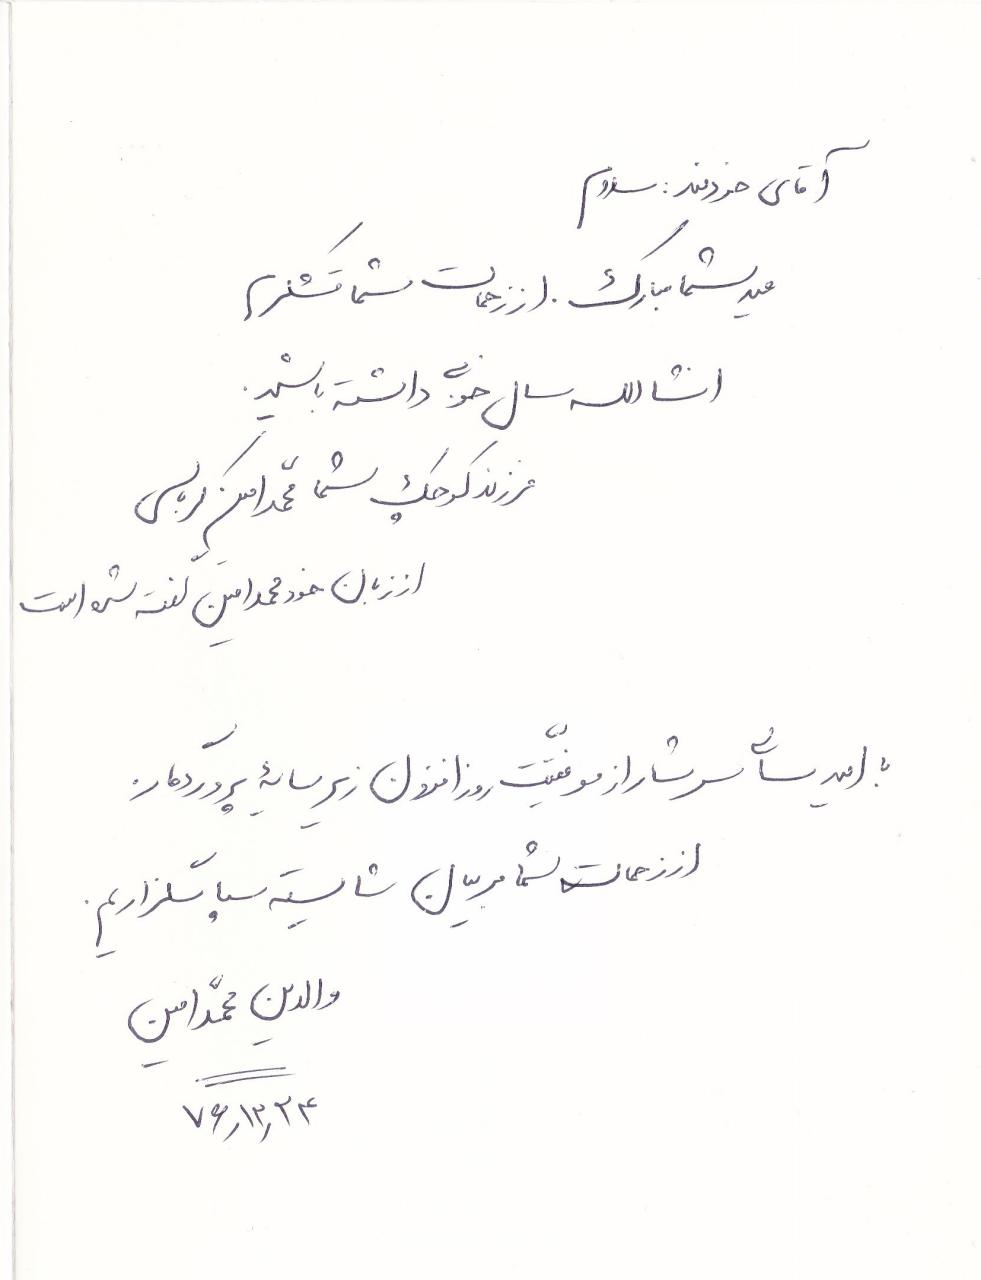 آقای خردمند: سلام
عید شما مبارک. از زحمات شما متشکرم
انشاالله سال خوبی داشته باشید.
فرزند کوچک شما محمّد امین کرباسی
از زبان خود محمد امین گفته شده است
به امید سالی سرشار از موفقیّت روزافزون زیر سایهٔ پروردگار.
از زحمات شما مربیان شایسته سپاسگزاریم.
والدین محمّد امین
۷۶٫۱۲٫۲۴